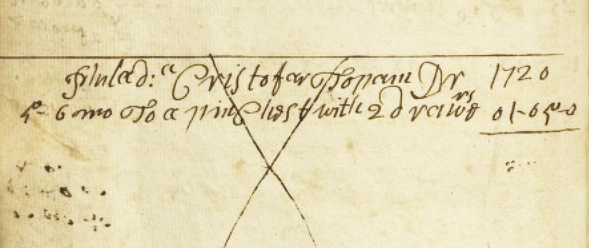 Philad:a Cristofar Topam Dr 1720
5- 6 mo To a pin Chest with 2 drawrs 01-05-0